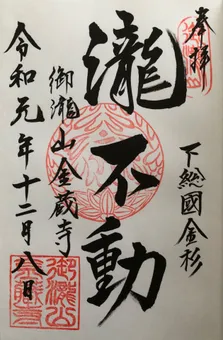 奉拝
下総國金杉
瀧不動
御瀧山金蔵寺
令和元年十二月八日
御瀧山
金蔵寺